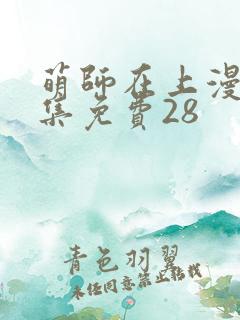 萌師在上漫
集免費28
青色羽翼
未经同意禁止转载